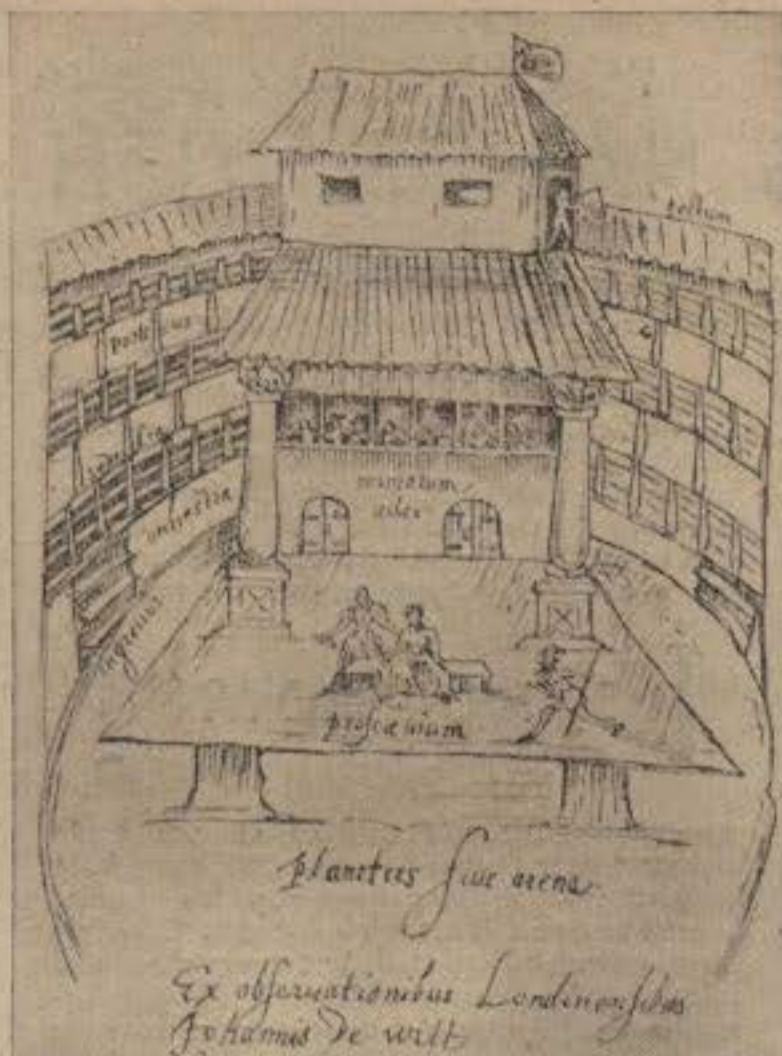 tectum
porticus
sedilia
orchestra
mimorum
ædes
ingressus
proscænium
planities siue arena
Ex obseruationibus Londinensibus
Johannis De witt